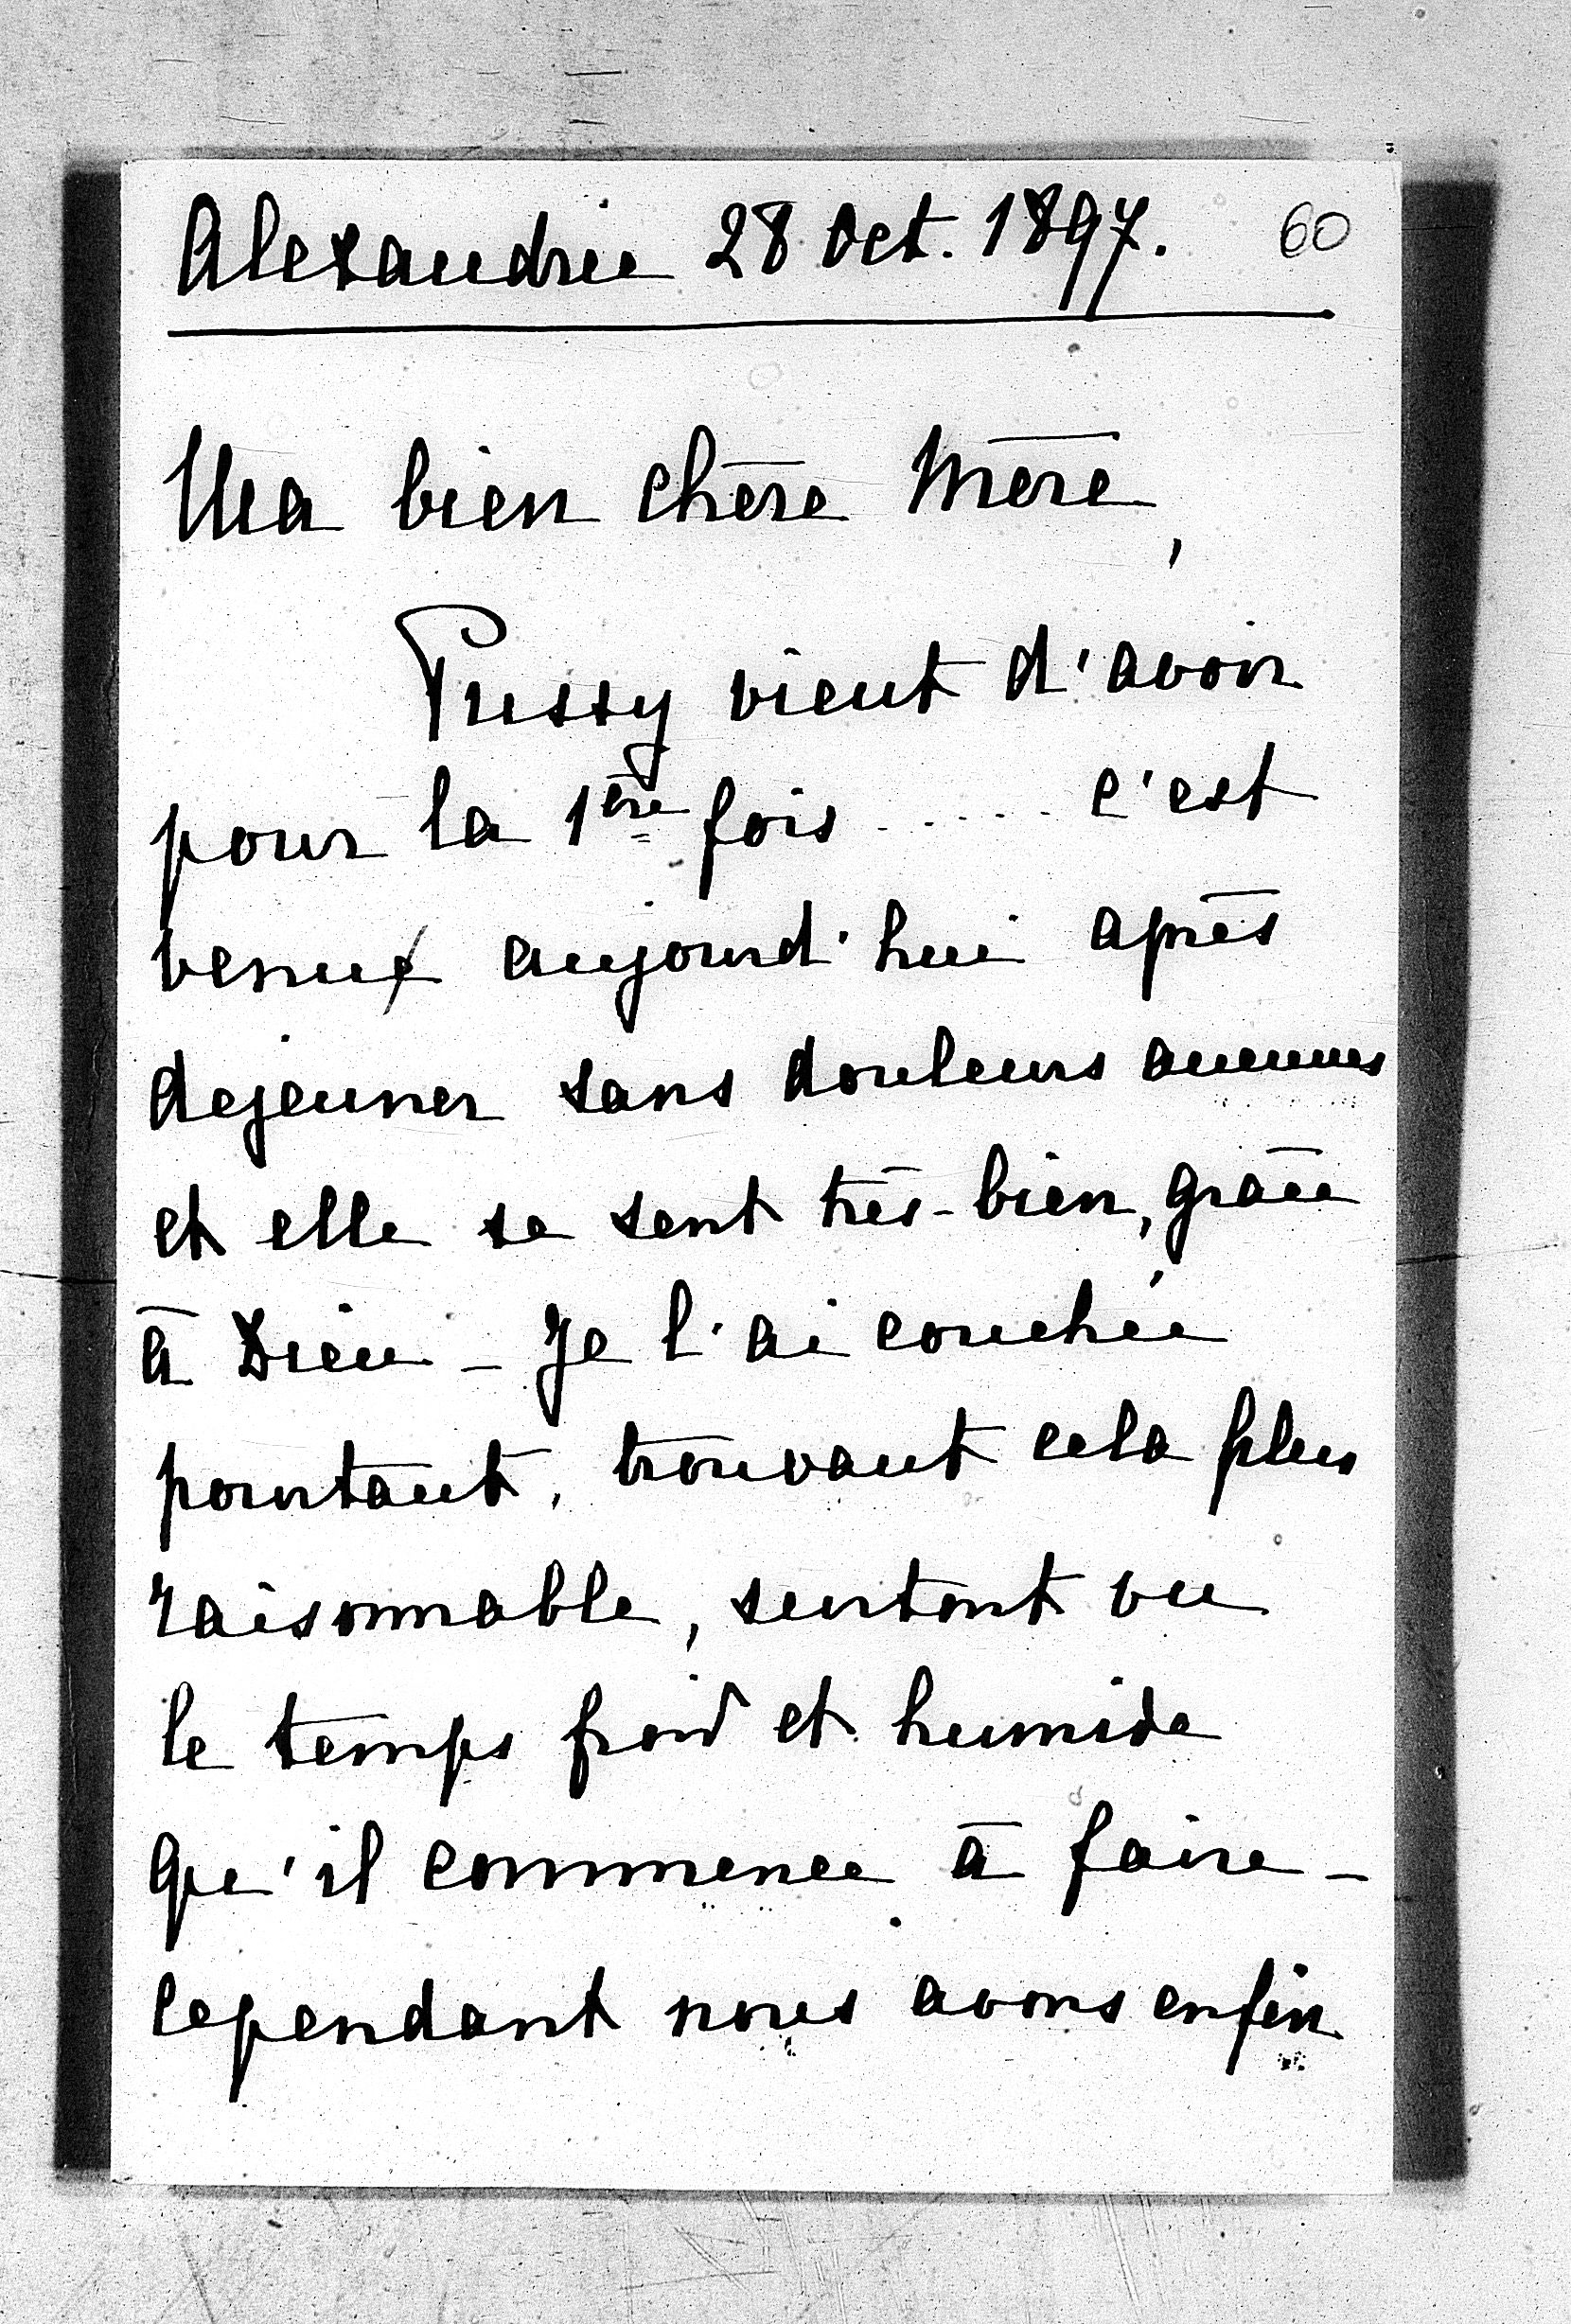 Alexandrie 28 Oct. 1897. 60
Ma bien chère Mère,
Pussy vient d'avoir
pour la 1ère fois ...... c'est
venue aujourd'hui après
dejeuner sans douleurs aucunes
et elle se sent très-bien, grâce
à Dieu - Je l'ai couchée
pourtant, trouvant cela plus
raisonnable, surtout vu
le temps froid et humide
qu'il commence à faire -
Cependant nous avons enfin